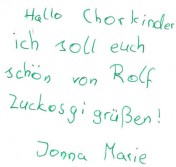 Hallo Chorkinder
ich soll euch
schön von Rolf
Zuckosgi grüßen!
Jonna Marie